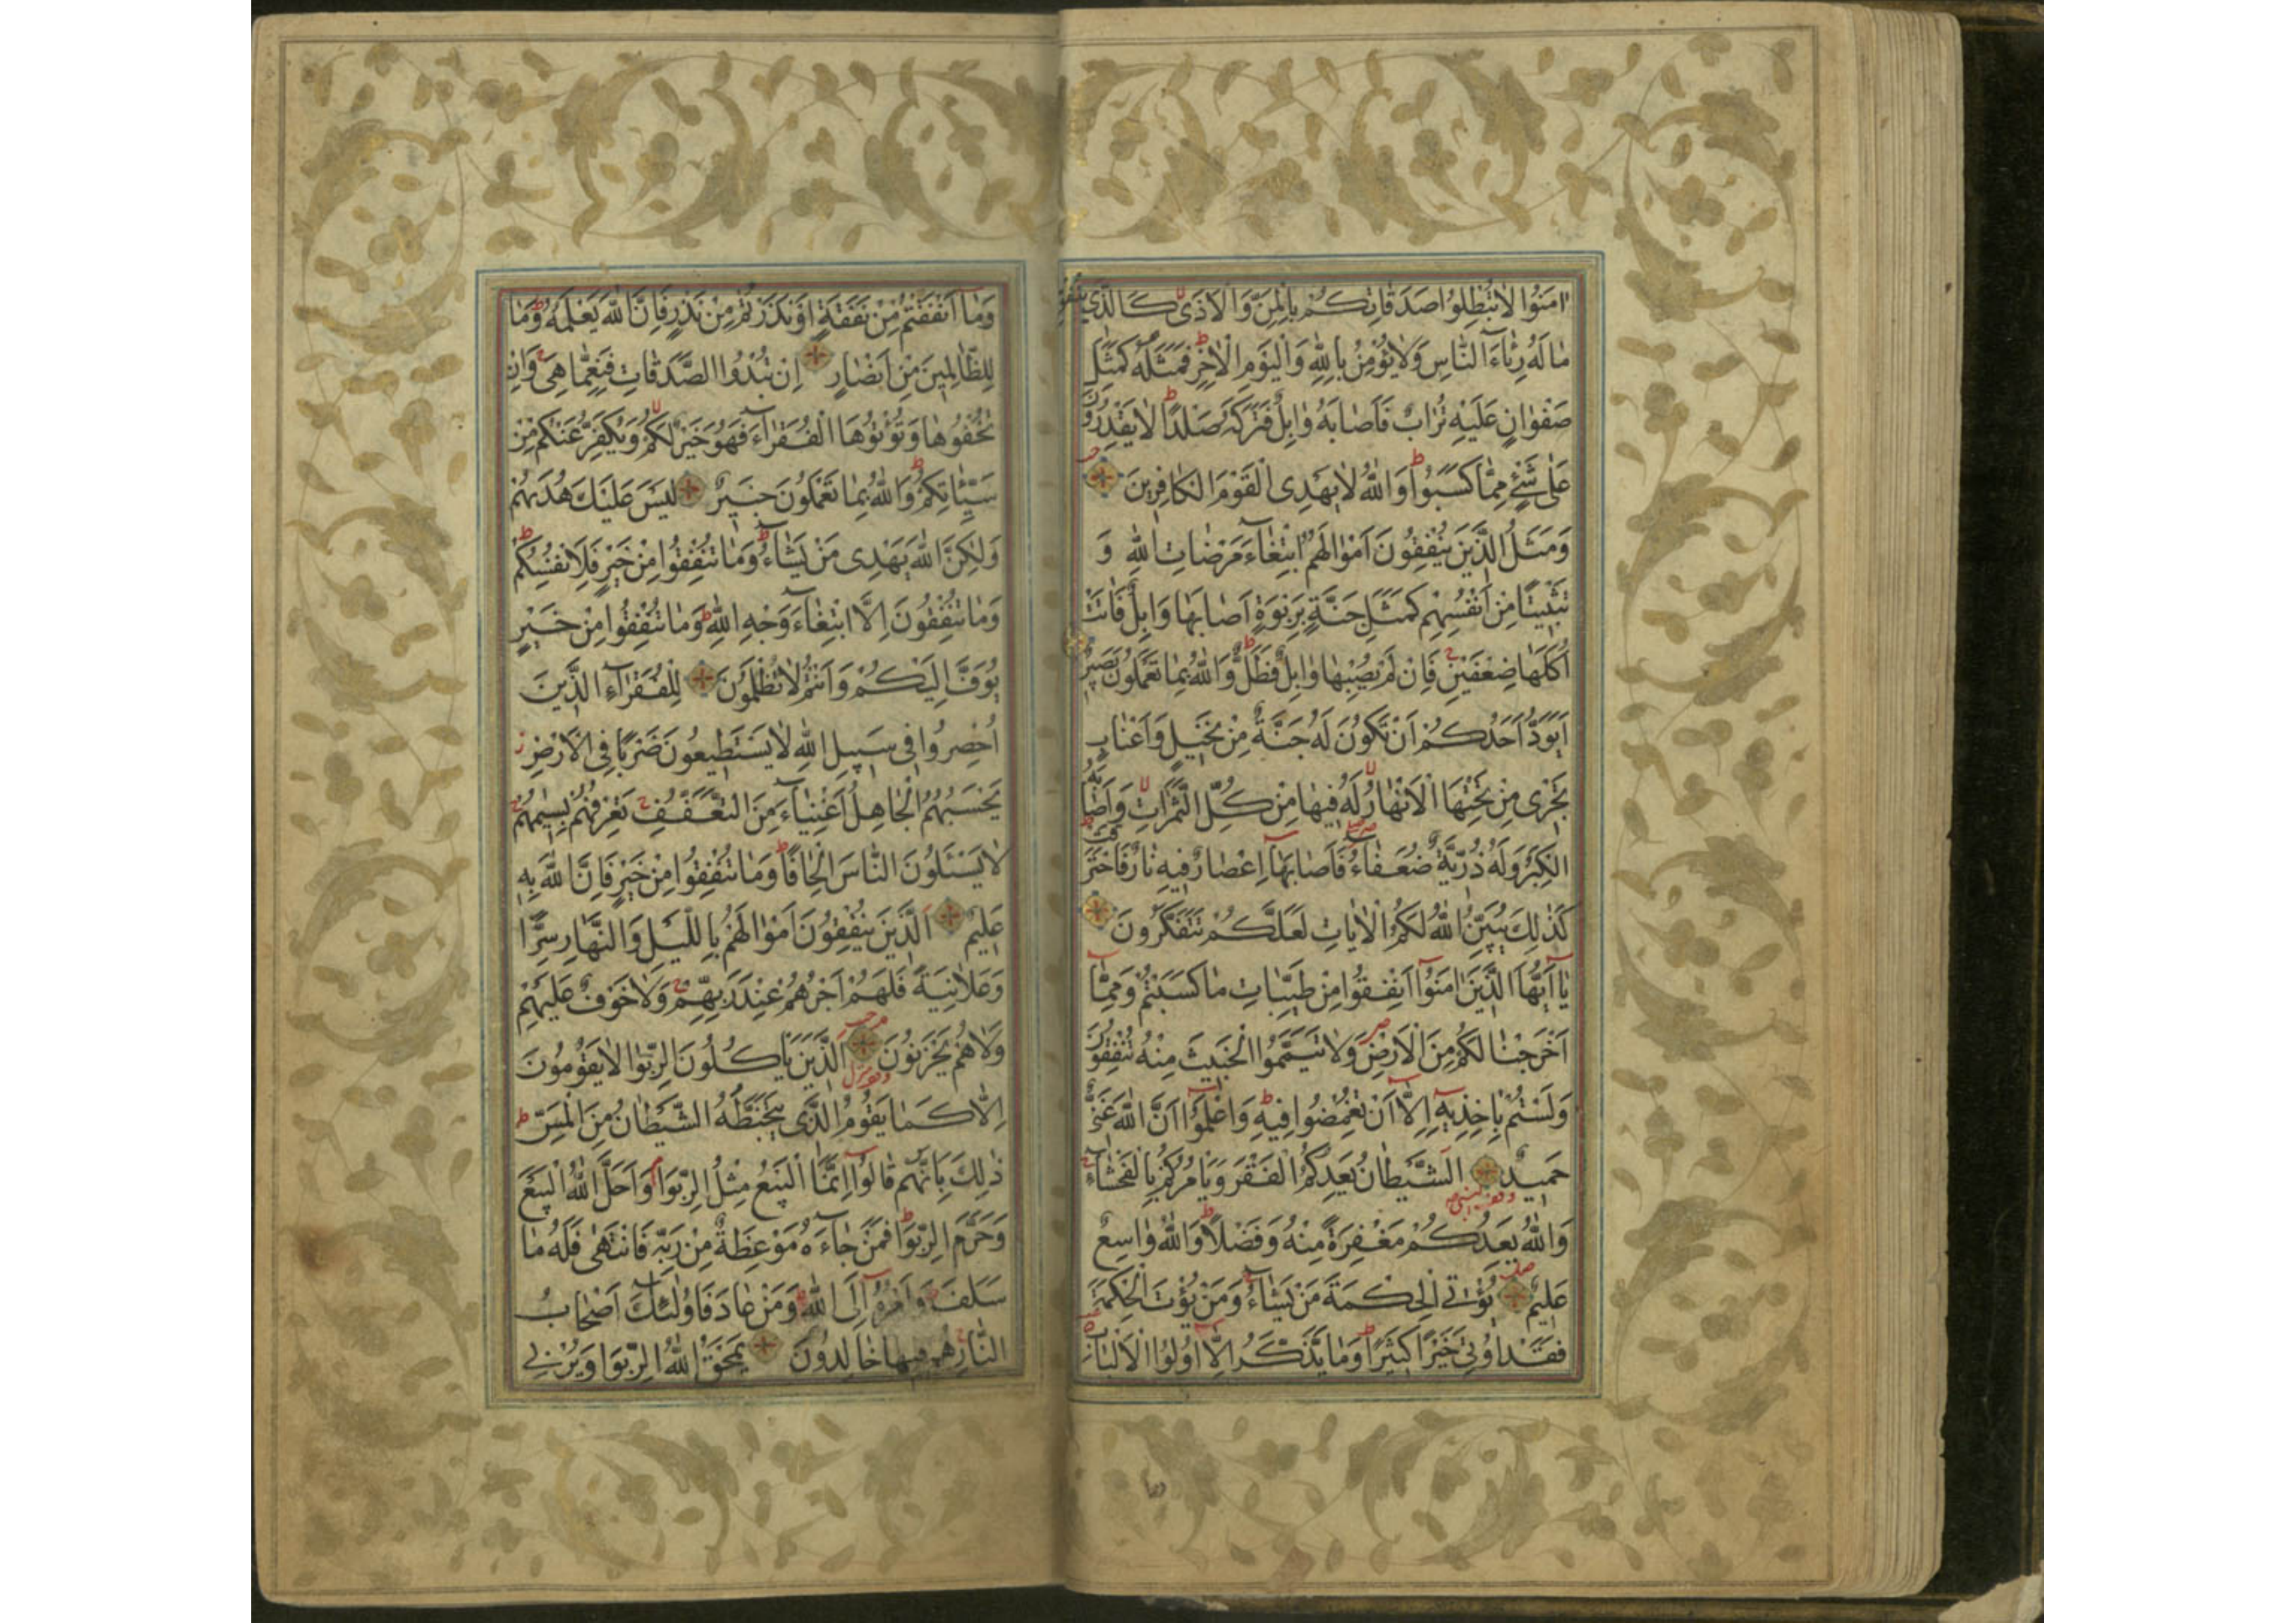 اٰمَنُوا لَا تُبْطِلُوا صَدَقَاتِكُمْ بِالْمَنِّ وَالْاَذٰى كَالَّذِي يُنْفِقُ
مَا لَهُ رِئَاءَ النَّاسِ وَلَا يُؤْمِنُ بِاللّٰهِ وَالْيَوْمِ الْاٰخِرِ فَمَثَلُهُ كَمَثَلِ
صَفْوَانٍ عَلَيْهِ تُرَابٌ فَاَصَابَهُ وَابِلٌ فَتَرَكَهُ صَلْدًا لَا يَقْدِرُونَ
عَلٰى شَيْءٍ مِمَّا كَسَبُوا وَاللّٰهُ لَا يَهْدِي الْقَوْمَ الْكَافِرِينَ
وَمَثَلُ الَّذِينَ يُنْفِقُونَ اَمْوَالَهُمُ ابْتِغَاءَ مَرْضَاتِ اللّٰهِ وَ
تَثْبِيتًا مِنْ اَنْفُسِهِمْ كَمَثَلِ جَنَّةٍ بِرَبْوَةٍ اَصَابَهَا وَابِلٌ فَاٰتَتْ
اُكُلَهَا ضِعْفَيْنِ فَاِنْ لَمْ يُصِبْهَا وَابِلٌ فَطَلٌّ وَاللّٰهُ بِمَا تَعْمَلُونَ بَصِيرٌ
اَيَوَدُّ اَحَدُكُمْ اَنْ تَكُونَ لَهُ جَنَّةٌ مِنْ نَخِيلٍ وَاَعْنَابٍ
تَجْرِي مِنْ تَحْتِهَا الْاَنْهَارُ لَهُ فِيهَا مِنْ كُلِّ الثَّمَرَاتِ وَاَصَابَهُ
الْكِبَرُ وَلَهُ ذُرِّيَّةٌ ضُعَفَاءُ فَاَصَابَهَا اِعْصَارٌ فِيهِ نَارٌ فَاحْتَرَقَتْ
كَذٰلِكَ يُبَيِّنُ اللّٰهُ لَكُمُ الْاٰيَاتِ لَعَلَّكُمْ تَتَفَكَّرُونَ
يَا اَيُّهَا الَّذِينَ اٰمَنُوا اَنْفِقُوا مِنْ طَيِّبَاتِ مَا كَسَبْتُمْ وَمِمَّا
اَخْرَجْنَا لَكُمْ مِنَ الْاَرْضِ وَلَا تَيَمَّمُوا الْخَبِيثَ مِنْهُ تُنْفِقُونَ
وَلَسْتُمْ بِاٰخِذِيهِ اِلَّا اَنْ تُغْمِضُوا فِيهِ وَاعْلَمُوا اَنَّ اللّٰهَ غَنِيٌّ
حَمِيدٌ اَلشَّيْطَانُ يَعِدُكُمُ الْفَقْرَ وَيَأْمُرُكُمْ بِالْفَحْشَاءِ
وَاللّٰهُ يَعِدُكُمْ مَغْفِرَةً مِنْهُ وَفَضْلًا وَاللّٰهُ وَاسِعٌ
عَلِيمٌ يُؤْتِي الْحِكْمَةَ مَنْ يَشَاءُ وَمَنْ يُؤْتَ الْحِكْمَةَ
فَقَدْ اُوتِيَ خَيْرًا كَثِيرًا وَمَا يَذَّكَّرُ اِلَّا اُولُوا الْاَلْبَابِ
وما
وَمَا اَنْفَقْتُمْ مِنْ نَفَقَةٍ اَوْ نَذَرْتُمْ مِنْ نَذْرٍ فَاِنَّ اللّٰهَ يَعْلَمُهُ وَمَا
لِلظَّالِمِينَ مِنْ اَنْصَارٍ اِنْ تُبْدُوا الصَّدَقَاتِ فَنِعِمَّا هِيَ وَاِنْ
تُخْفُوهَا وَتُؤْتُوهَا الْفُقَرَاءَ فَهُوَ خَيْرٌ لَكُمْ وَيُكَفِّرُ عَنْكُمْ مِنْ
سَيِّئَاتِكُمْ وَاللّٰهُ بِمَا تَعْمَلُونَ خَبِيرٌ لَيْسَ عَلَيْكَ هُدٰيهُمْ
وَلٰكِنَّ اللّٰهَ يَهْدِي مَنْ يَشَاءُ وَمَا تُنْفِقُوا مِنْ خَيْرٍ فَلِاَنْفُسِكُمْ
وَمَا تُنْفِقُونَ اِلَّا ابْتِغَاءَ وَجْهِ اللّٰهِ وَمَا تُنْفِقُوا مِنْ خَيْرٍ
يُوَفَّ اِلَيْكُمْ وَاَنْتُمْ لَا تُظْلَمُونَ لِلْفُقَرَاءِ الَّذِينَ
اُحْصِرُوا فِي سَبِيلِ اللّٰهِ لَا يَسْتَطِيعُونَ ضَرْبًا فِي الْاَرْضِ
يَحْسَبُهُمُ الْجَاهِلُ اَغْنِيَاءَ مِنَ التَّعَفُّفِ تَعْرِفُهُمْ بِسِيمٰهُمْ
لَا يَسْئَلُونَ النَّاسَ اِلْحَافًا وَمَا تُنْفِقُوا مِنْ خَيْرٍ فَاِنَّ اللّٰهَ بِهِ
عَلِيمٌ اَلَّذِينَ يُنْفِقُونَ اَمْوَالَهُمْ بِاللَّيْلِ وَالنَّهَارِ سِرًّا
وَعَلَانِيَةً فَلَهُمْ اَجْرُهُمْ عِنْدَ رَبِّهِمْ وَلَا خَوْفٌ عَلَيْهِمْ
وَلَا هُمْ يَحْزَنُونَ اَلَّذِينَ يَأْكُلُونَ الرِّبٰوا لَا يَقُومُونَ
اِلَّا كَمَا يَقُومُ الَّذِي يَتَخَبَّطُهُ الشَّيْطَانُ مِنَ الْمَسِّ
ذٰلِكَ بِاَنَّهُمْ قَالُوا اِنَّمَا الْبَيْعُ مِثْلُ الرِّبٰوا وَاَحَلَّ اللّٰهُ الْبَيْعَ
وَحَرَّمَ الرِّبٰوا فَمَنْ جَاءَهُ مَوْعِظَةٌ مِنْ رَبِّهِ فَانْتَهٰى فَلَهُ مَا
سَلَفَ وَاَمْرُهُ اِلَى اللّٰهِ وَمَنْ عَادَ فَاُولٰئِكَ اَصْحَابُ
النَّارِ هُمْ فِيهَا خَالِدُونَ يَمْحَقُ اللّٰهُ الرِّبٰوا وَيُرْبِي